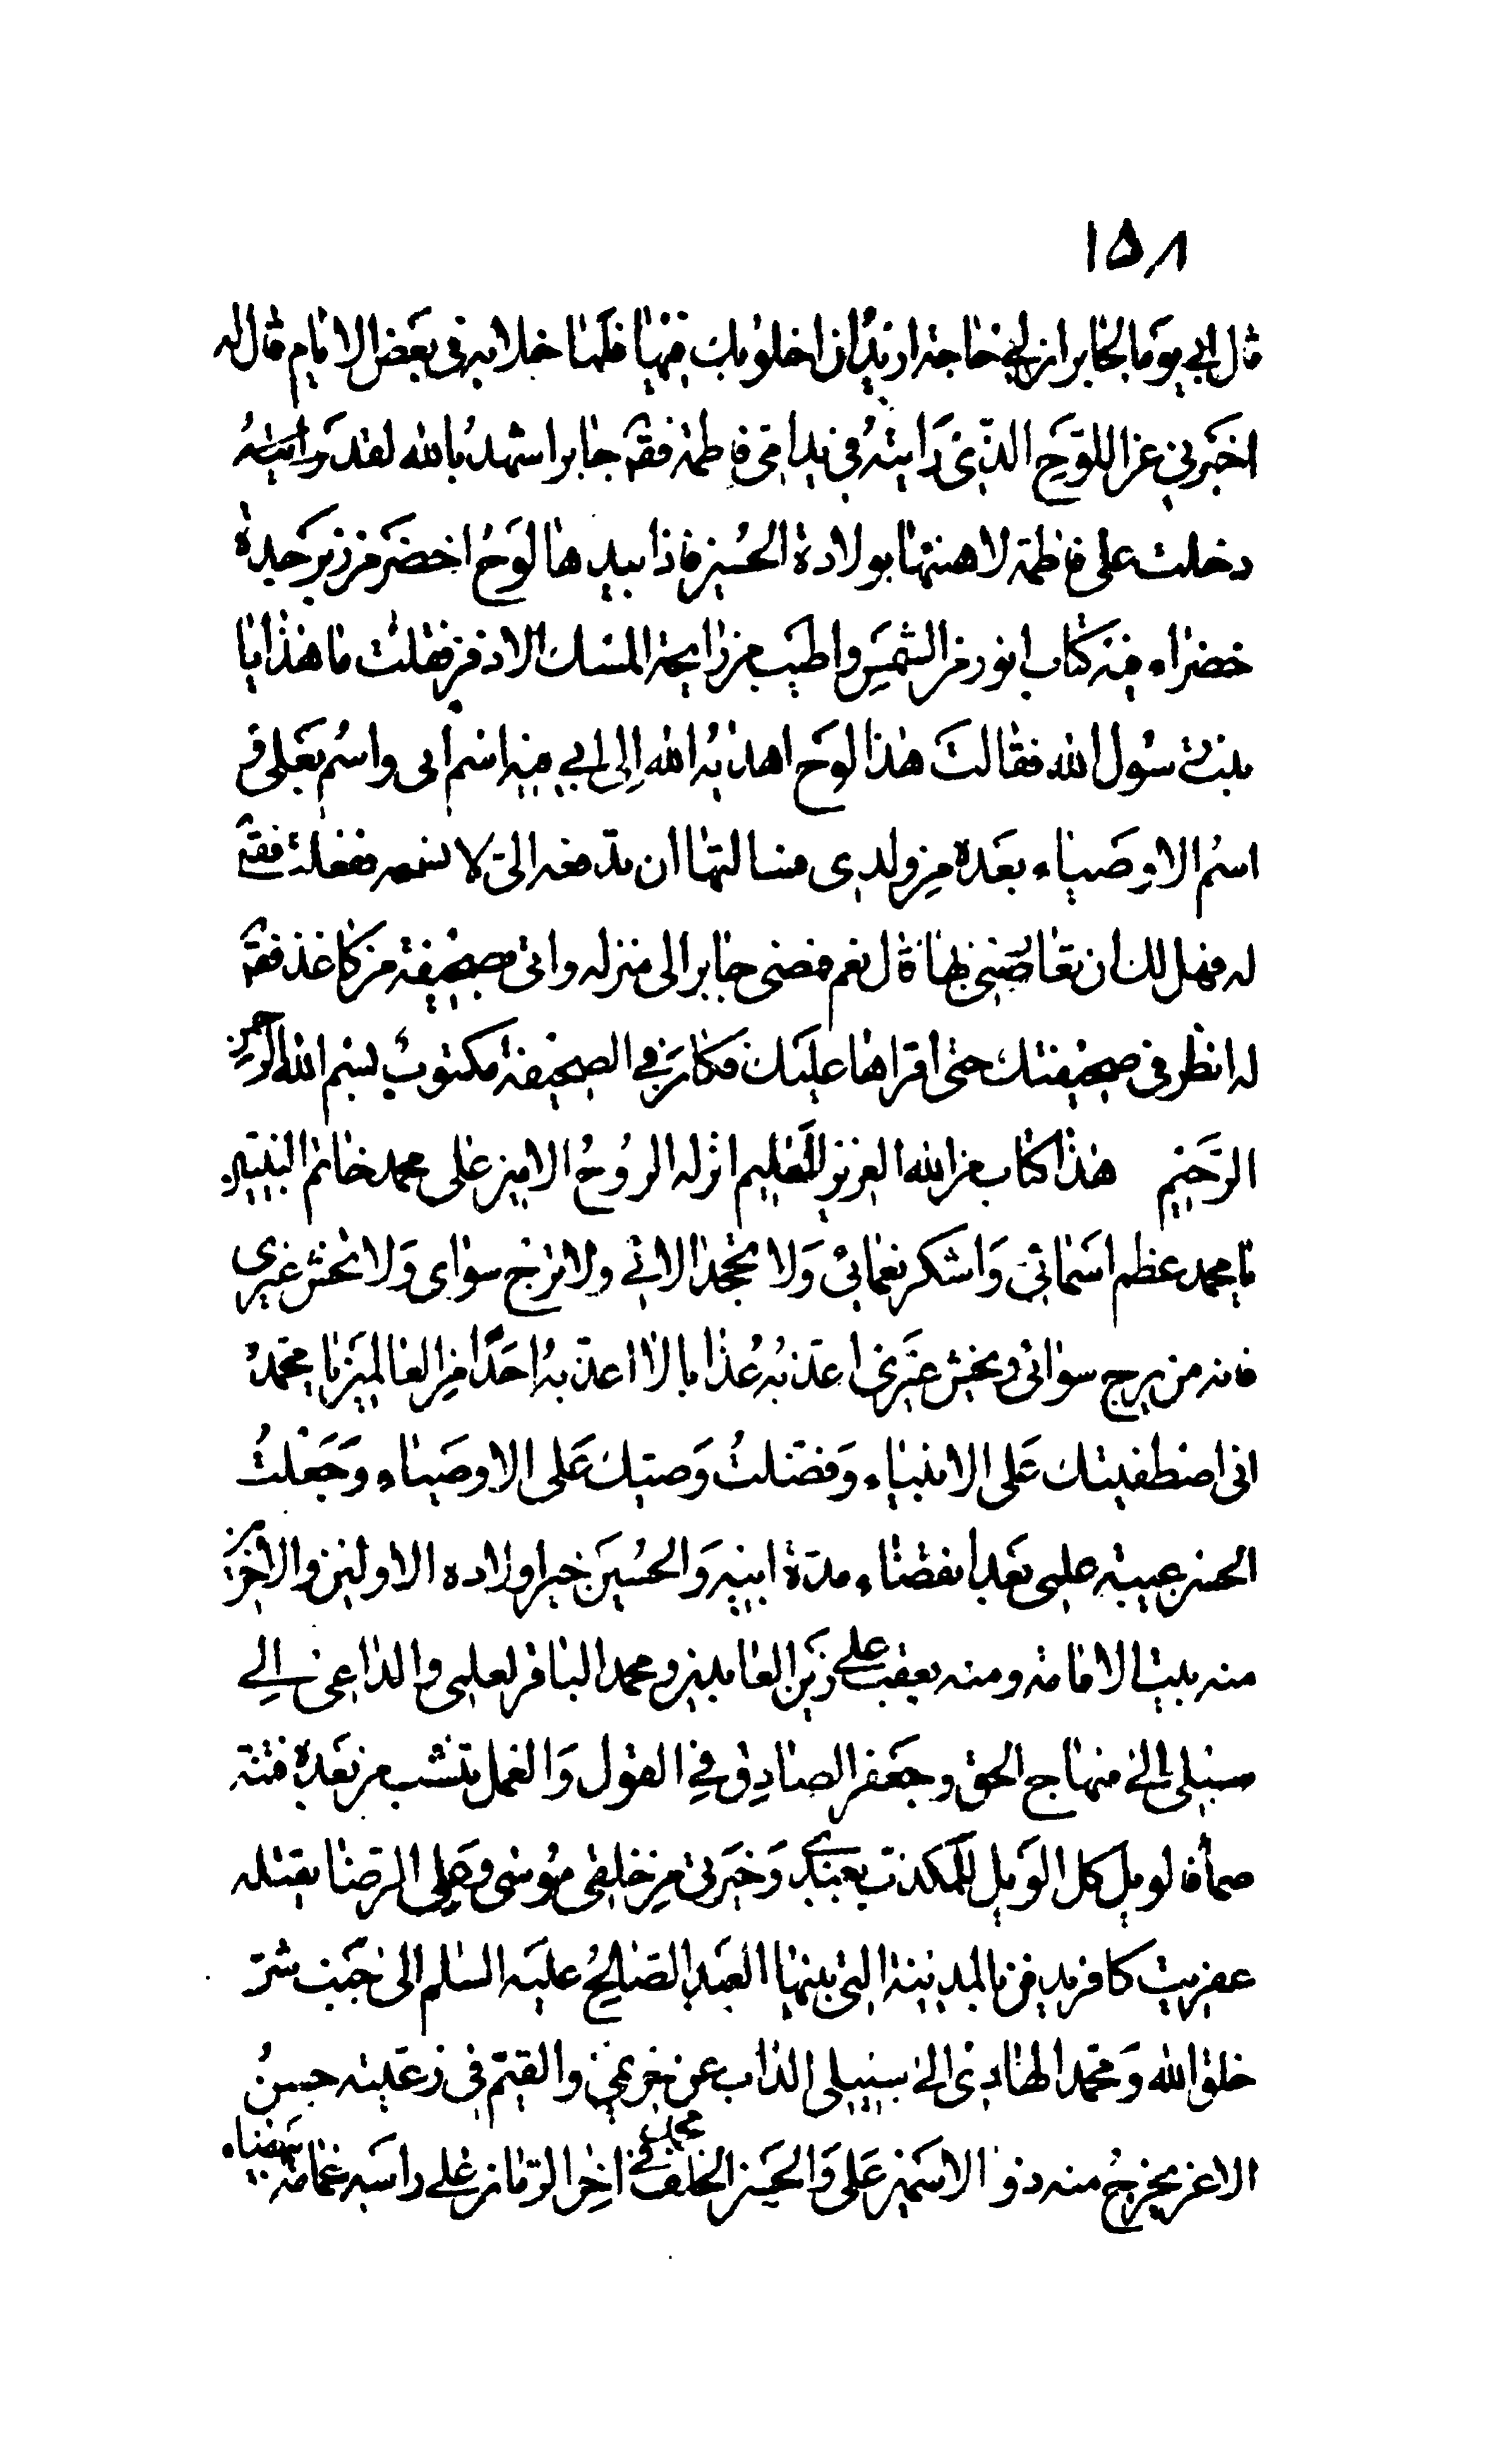 ١٥٨
قال ابي يوما لجابر ان لي حاجة اريد ان اخلو بك فيها فلما خلا به في بعض الايام قال له
اخبرني عن اللوح الذي رايته في يد امي فاطمة فقـ جابر اشهد بالله لقد رايته
دخلت على فاطمة لاهنئها بولادة الحسين فاذا بيدها لوح اخضر من زبرجدة
خضراء فيه كتاب انور من الشمس واطيب من رايحة المسك الاذفر فقلت ما هذا يا
بنت رسول الله فقالت هذا لوح اهداه الله الى ابي فيه اسم ابي واسم بعلي و
اسم الاوصياء بعده من ولدي فسالتها ان تدفعه الي لانسخه ففعلت فقـ
له فهل لك ان تعارضني بها قال نعم فمضى جابر الى منزله واتى بصحيفة من كاغذ فقـ
له انظر في صحيفتك حتى اقراها عليك فكان في الصحيفة مكتوب بسم الله الرحمن
الرحيم هذا كتاب من الله العزيز العليم انزله الروح الامين على محمد خاتم النبيين
يا محمد عظم اسمائي واشكر نعمائي ولا تجحد الائي ولا ترج سواي ولا تخش غيري
فانه من يرج سوائي ويخش غيري اعذبه عذابا لا اعذبه احدا من العالمين يا محمد
اني اصطفيتك على الانبياء وفضلت وصيك على الاوصياء وجعلت
الحسن عيبة علمي بعد انقضاء مدة ابيه والحسين خير اولاده الاولين والاخرين
منه بيت الامامة ومنه يعقب علي زين العابدين ومحمد الباقر لعلمي والداعي الى
سبيلي الى منهاج الحق وجعفر الصادق في القول والعمل تنشب من بعده فتنة
صماء فالويل كل الويل للمكذب بعبدي وخيرتي من خلقي موسى وعلي الرضا يقتله
عفريت كافر يدفن بالمدينة التي بنيها العبد الصالح عليه السلم الى جنب شر
خلق الله ومحمد الهادي الى سبيلي الذاب عن حريمي والقيم في رعيته حسن
الاغر يخرج منه ذو الاسمين علي والحسن الخلف محمد في اخر الزمان على راسه غمامة بيضاء